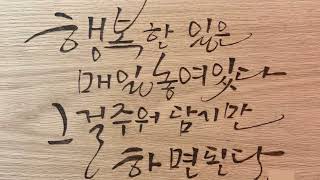 행복한 일은
매일 놓여있다
그걸 주워 담기만
하면된다